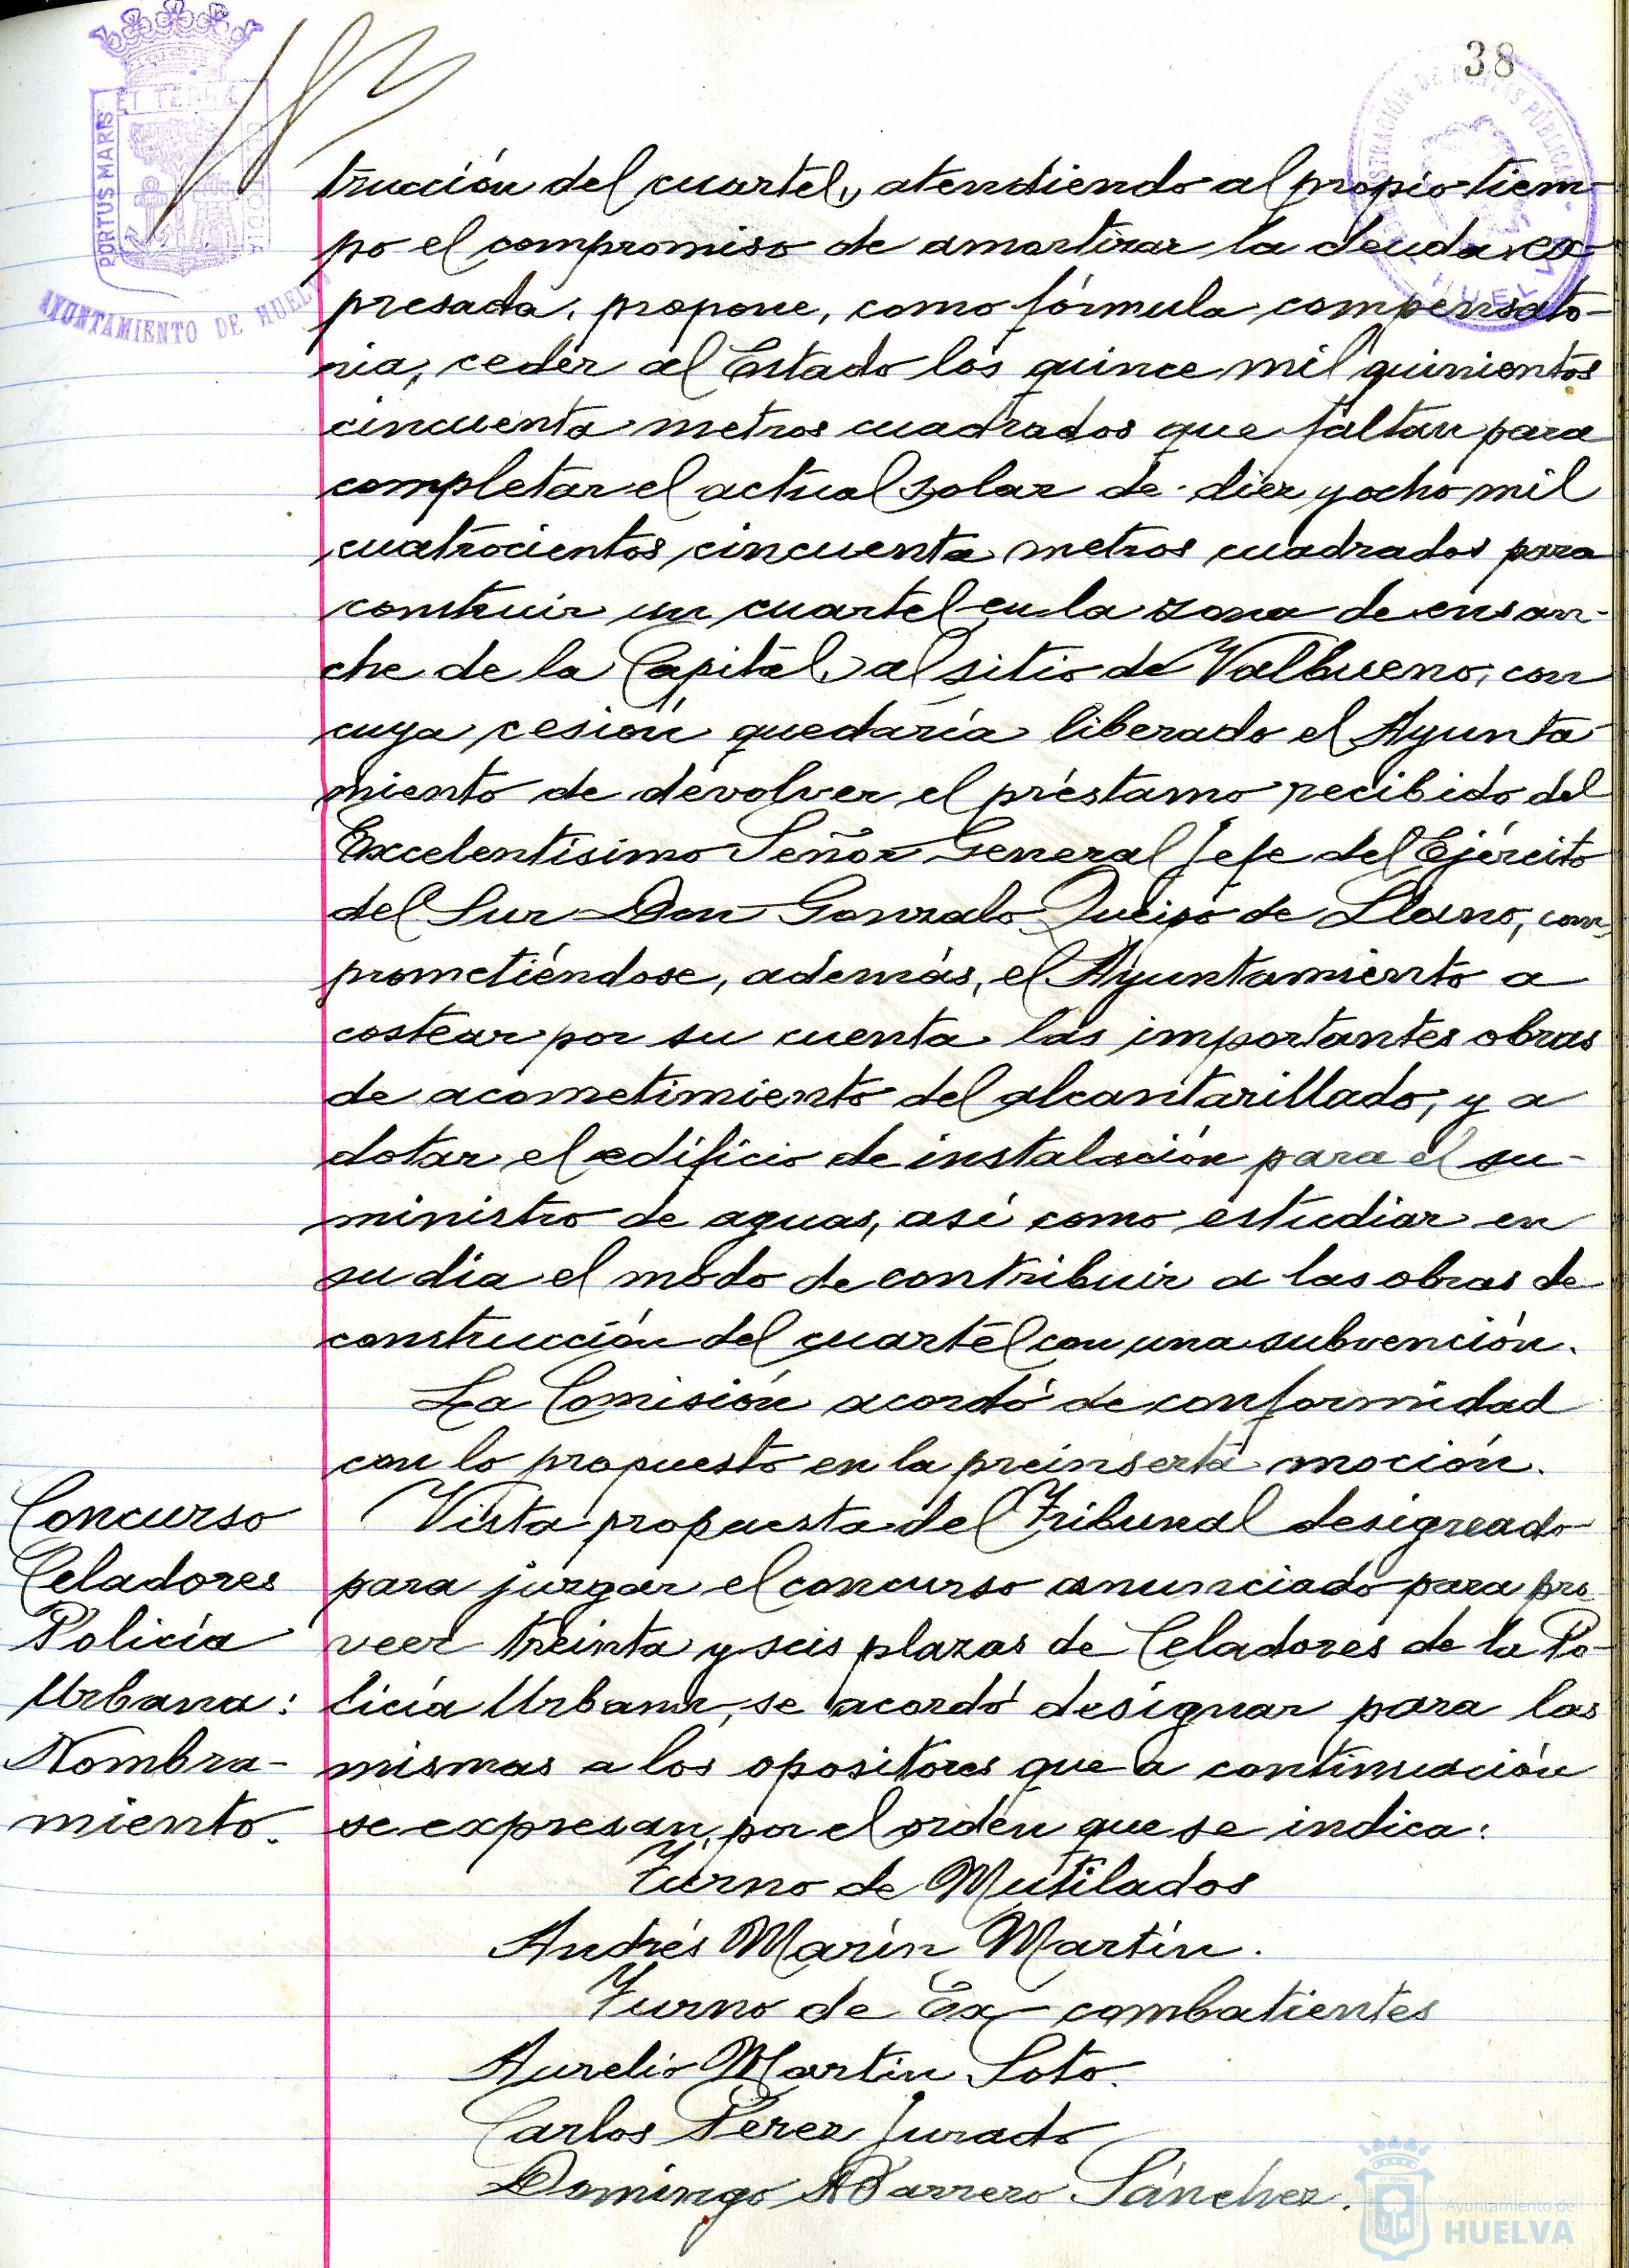 38
PORTUS MARIS ET TERRE CUSTODIA
AYUNTAMIENTO DE HUELVA
trucción del cuartel, atendiendo al propio tiem-
po el compromiso de amortizar la deuda ex-
presada, propone, como fórmula compensato-
ria, ceder al Estado los quince mil quinientos
cincuenta metros cuadrados que faltan para
completar el actual solar de diez y ocho mil
cuatrocientos cincuenta metros cuadrados para
construir un cuartel en la zona de ensan-
che de la Capital, al sitio de Valbueno, con
cuya cesión quedaría liberado el Ayunta
miento de devolver el préstamo recibido del
Excelentísimo Señor General Jefe del Ejército
del Sur Don Gonzalo Queipo de Llano, com-
prometiéndose, además, el Ayuntamiento a
costear por su cuenta las importantes obras
de acometimiento del alcantarillado, y a
dotar el edificio de instalación para el su-
ministro de aguas, así como estudiar en
su dia el modo de contribuir a las obras de
construcción del cuartel con una subvención.
La Comisión acordó de conformidad
con lo propuesto en la preinserta moción.
Concurso
Celadores
Policía
Urbana:
Nombra-
miento.
Vista propuesta del Tribunal designado
para juzgar el concurso anunciado para pro-
veer treinta y seis plazas de Celadores de la Po-
licía Urbana, se acordó designar para las
mismas a los opositores que a continuación
se expresan, por el orden que se indica:
Turno de Mutilados
Andrés Marín Martín.
Turno de Ex-combatientes
Aurelio Martin Soto.
Carlos Perez Jurado
Domingo Barrero Sánchez.
Ayuntamiento de
HUELVA